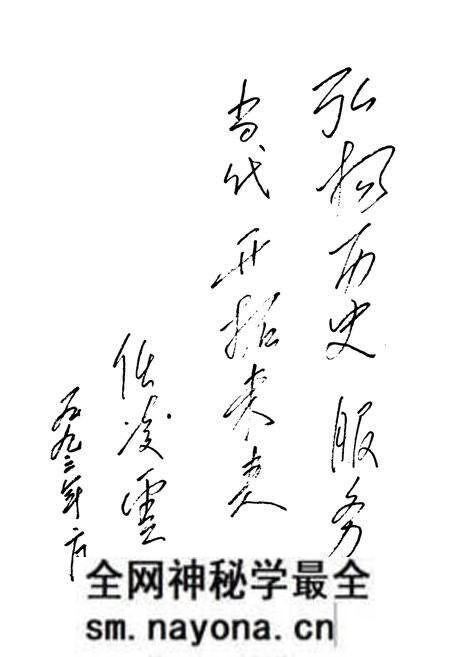 弘扬历史 服务
当代 开拓未来
凌雲
九三年
全网神秘学最全
sm.nayona.cn